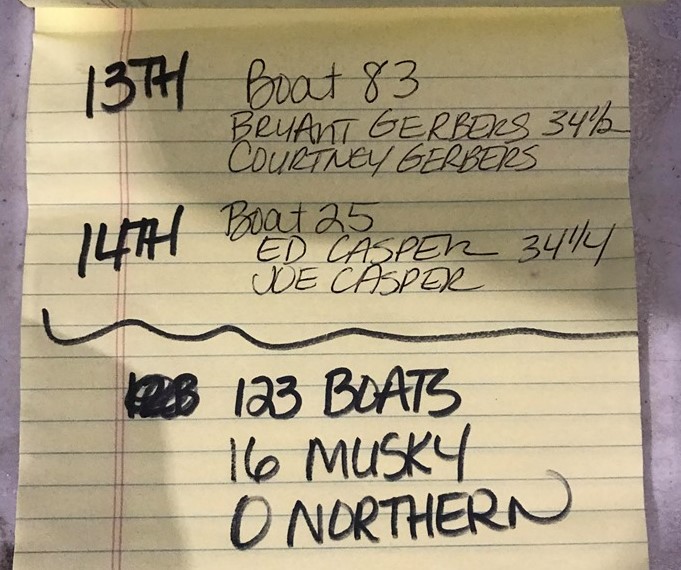 13TH Boat 83
BRYANT GERBERS 34 1/2
COURTNEY GERBERS
14TH Boat 25
ED CASPER 34 1/4
JOE CASPER
123 BOATS
16 MUSKY
0 NORTHERN